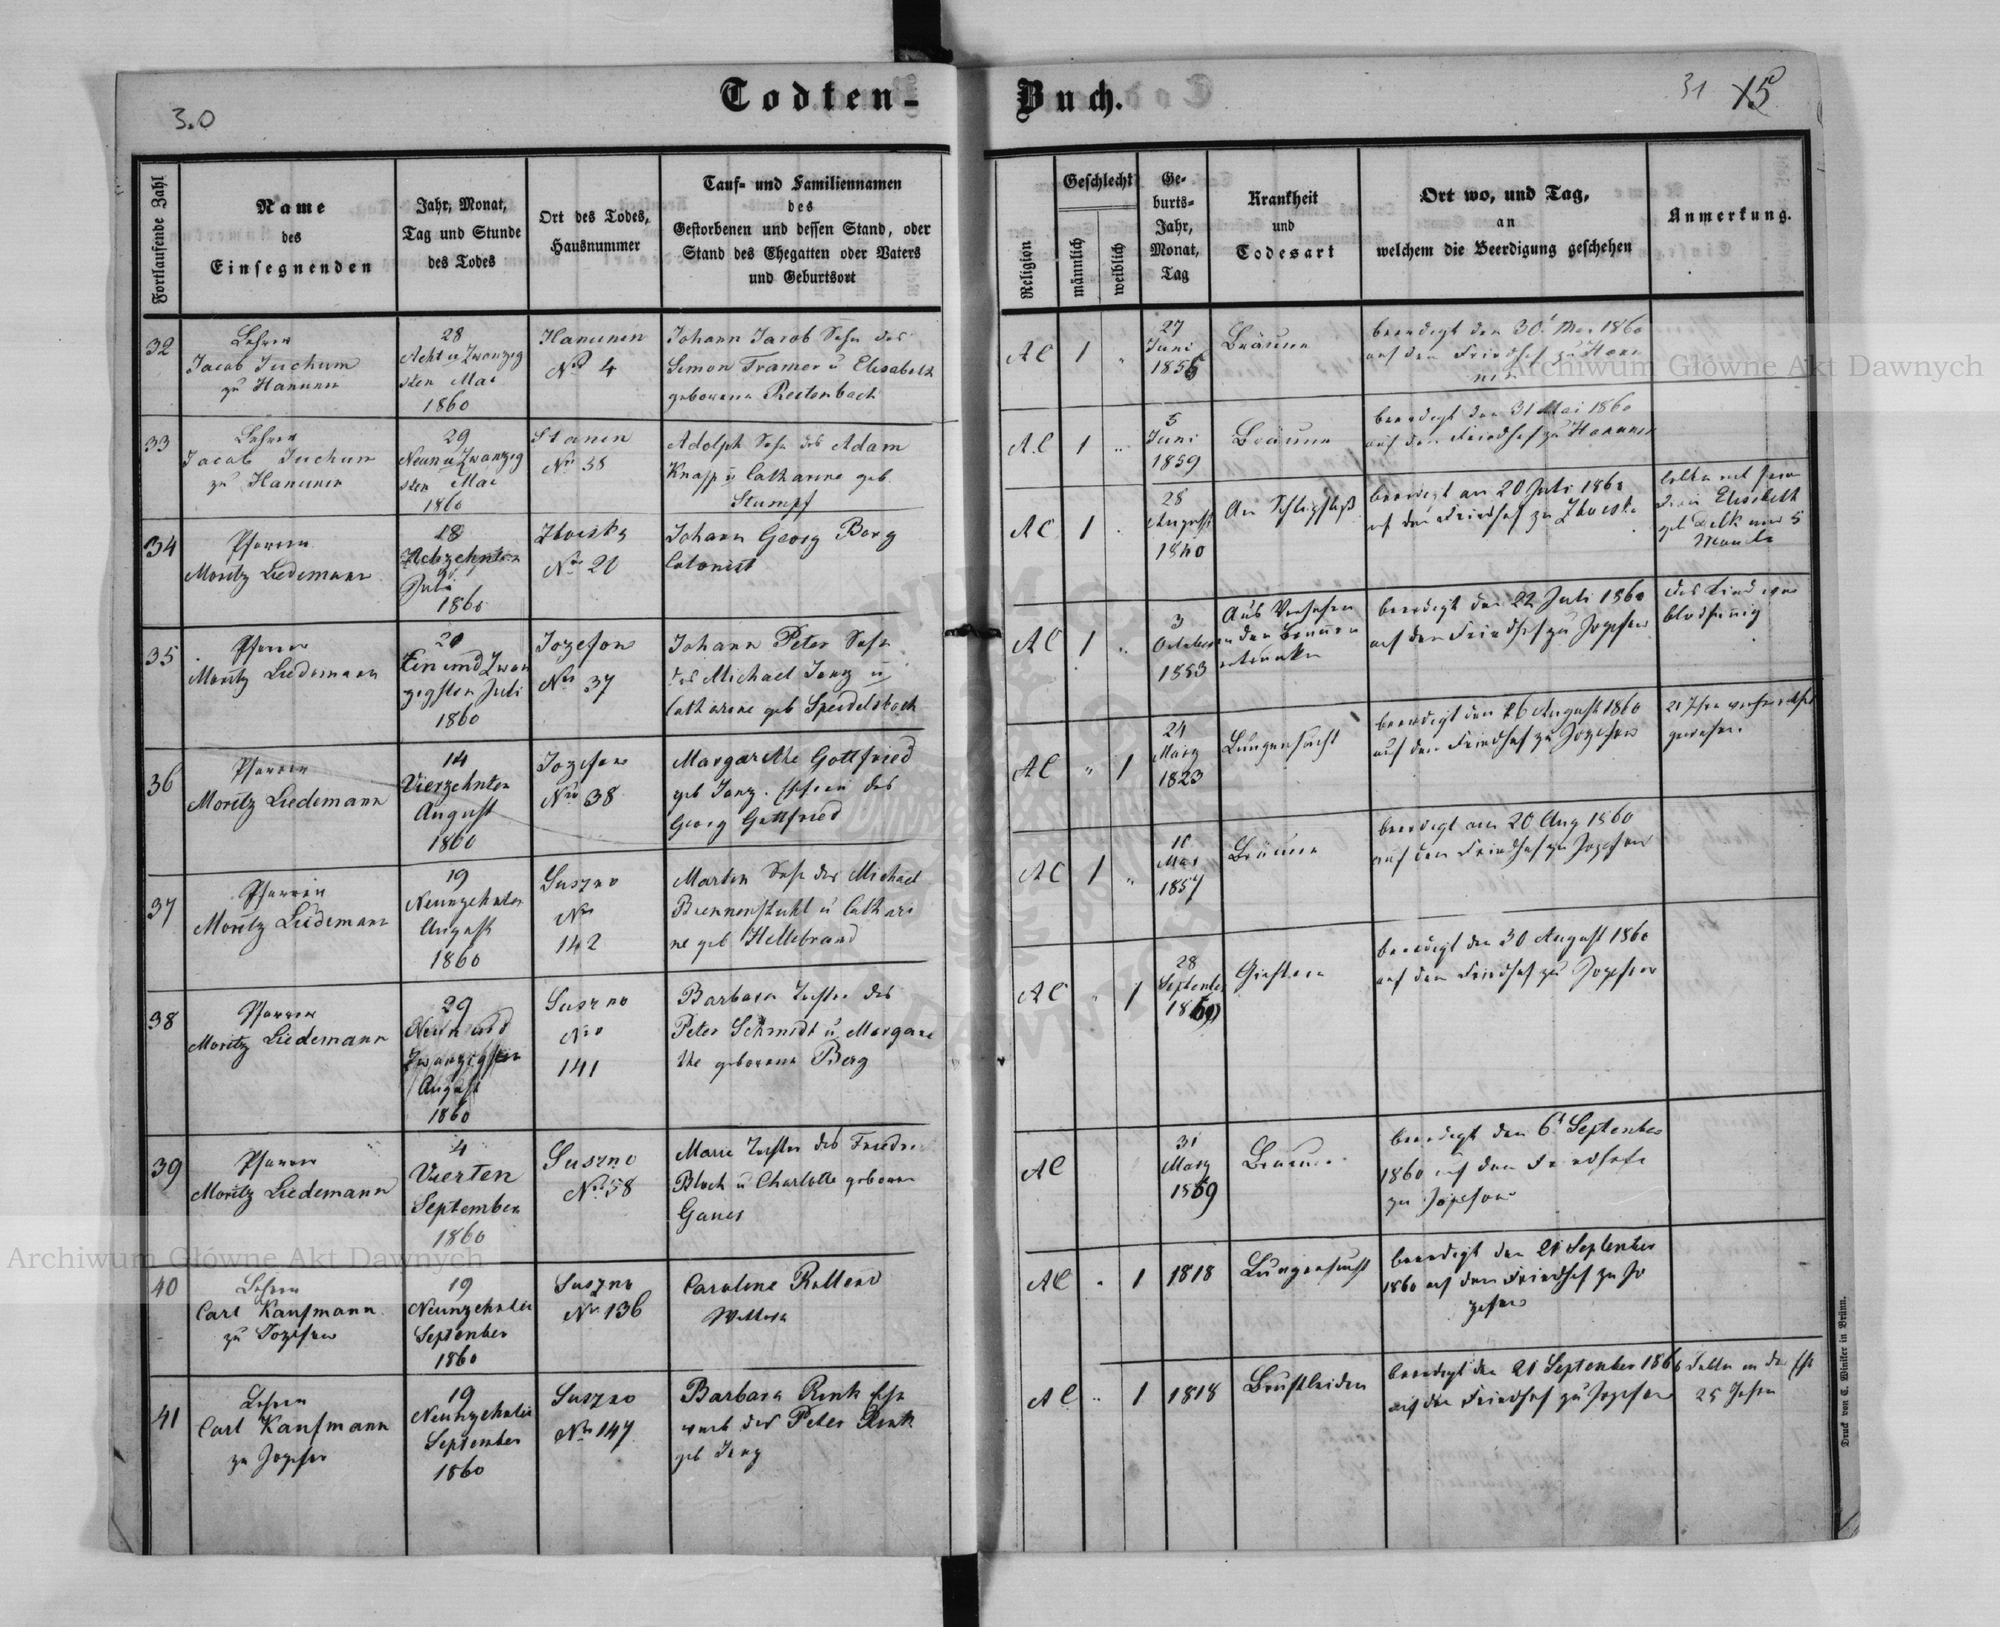 3.0
Todten-
Buch.
31 15
Fortlaufende Zahl
Name
des
Einsegnenden
Jahr, Monat,
Tag und Stunde
des Todes
Ort des Todes,
Hausnummer
Tauf- und Familiennamen
des
Gestorbenen und dessen Stand, oder
Stand des Ehegatten oder Vaters
und Geburtsort
Religion
Geschlecht
männlich
weiblich
Ge-
burts-
Jahr,
Monat,
Tag
Krankheit
und
Todesart
Ort wo, und Tag,
an
welchem die Beerdigung geschehen
Anmerkung.
32
Lehrer
Jacob Juchum
zu Hanunin
28
Acht u Zwanzig
sten Mai
1860
Hanunin
No 4
Johann Jacob Sohn des
Simon Tramer u Elisabeth
geborene Reitenbach
AC
1
"
27
Juni
Bräune
beerdigt den 30t Mai 1860
auf dem Friedhof zu Hanu
nin
33
Lehrer
Jacob Juchum
zu Hanunin
29
Neun u Zwanzig
sten Mai
1860
Stanin
Adolph Sohn des Adam
Knapp u Catharine geb
Stumpf
AC
1
"
5
Juni
1859
Bräune
beerdigt den 31 Mai 1860
auf dem Friedhof zu Hanunin
34
Pfarrer
Moritz Liedemann
18
Achzehnten
Juli
1860
No 20
Johann Georg Berg
Colonist
AC
1
28
August
Am Schlagfluß
beerdigt am 20 Juli 1860
auf dem Friedhof zu
Elisabeth
Monate
35
Pfarrer
Moritz Liedemann
Ein und Zwan
zigsten Juli
1860
Jozefow
No 37
Johann Peter Sohn
des Michael Jany u
Catharine geb Speidelsbach
AC
1
"
3
October
1853
Aus Versehen
in den Brunnen
ertrunken
beerdigt den 22 Juli 1860
auf dem Friedhof zu Jozefow
das Kind war
blodsinnig
36
Pfarrer
Moritz Liedemann
14
Vierzehnten
August
1860
Jozefow
No 38
Margarethe Gottfried
geb Jany. Ehfrau des
Georg Gottfried
AC
"
1
24
Marz
1823
Lungensucht
beerdigt den 16 August 1860
auf dem Friedhof zu Jozefow
gewesen.
37
Pfarrer
Moritz Liedemann
19
Neunzehnten
August
1860
Suszno
Nro
142
Martin Sohn des Michael
Brennenstuhl u Cathari
ne geb Hellebrand
AC
1
"
Mai
1857
Bräune
beerdigt am 20 Aug 1860
auf dem Friedhof zu Jozefow
38
Pfarrer
Moritz Liedemann
29
Neun und
Zwanzigsten
August
1860
Suszno
Nro
141
Barbara Tochter des
Peter Schmidt u Margare
the geborene Berg
AC
"
1
28
September
beerdigt den 30 August 1860
auf dem Friedhof zu Jozefow
39
Pfarrer
Moritz Liedemann
4
Vierten
September
1860
Suszno
No 58
Marie Tochter des Friedri
Bloch u Charlotte geborene
AC
31
Marz
Bräune
beerdigt den 6t September
1860 auf dem Friedhofe
zu Jozefow
40
Lehrer
Carl Kaufmann
zu Jozefow
19
Neunzehnten
September
1860
Suszno
No 136
Caroline
Wittwe
AC
"
1
1818
Lungensucht
beerdigt den 21 September
1860 auf dem Friedhof zu Jo
zefow
41
Lehrer
Carl Kaufmann
zu Jozefow
19
Neunzehnten
September
1860
Suszno
No 147
Barbara Rink Ehe
weib des Peter Rink
geb Jany
AC
"
1
1818
Brustleiden
beerdigt den 21 September 1860
auf dem Friedhof zu Jozefow
lebte in der Ehe
25 Jahre
Druck von C. Winiker in Brünn.
Archiwum Główne Akt Dawnych
Archiwum Główne Akt Dawnych